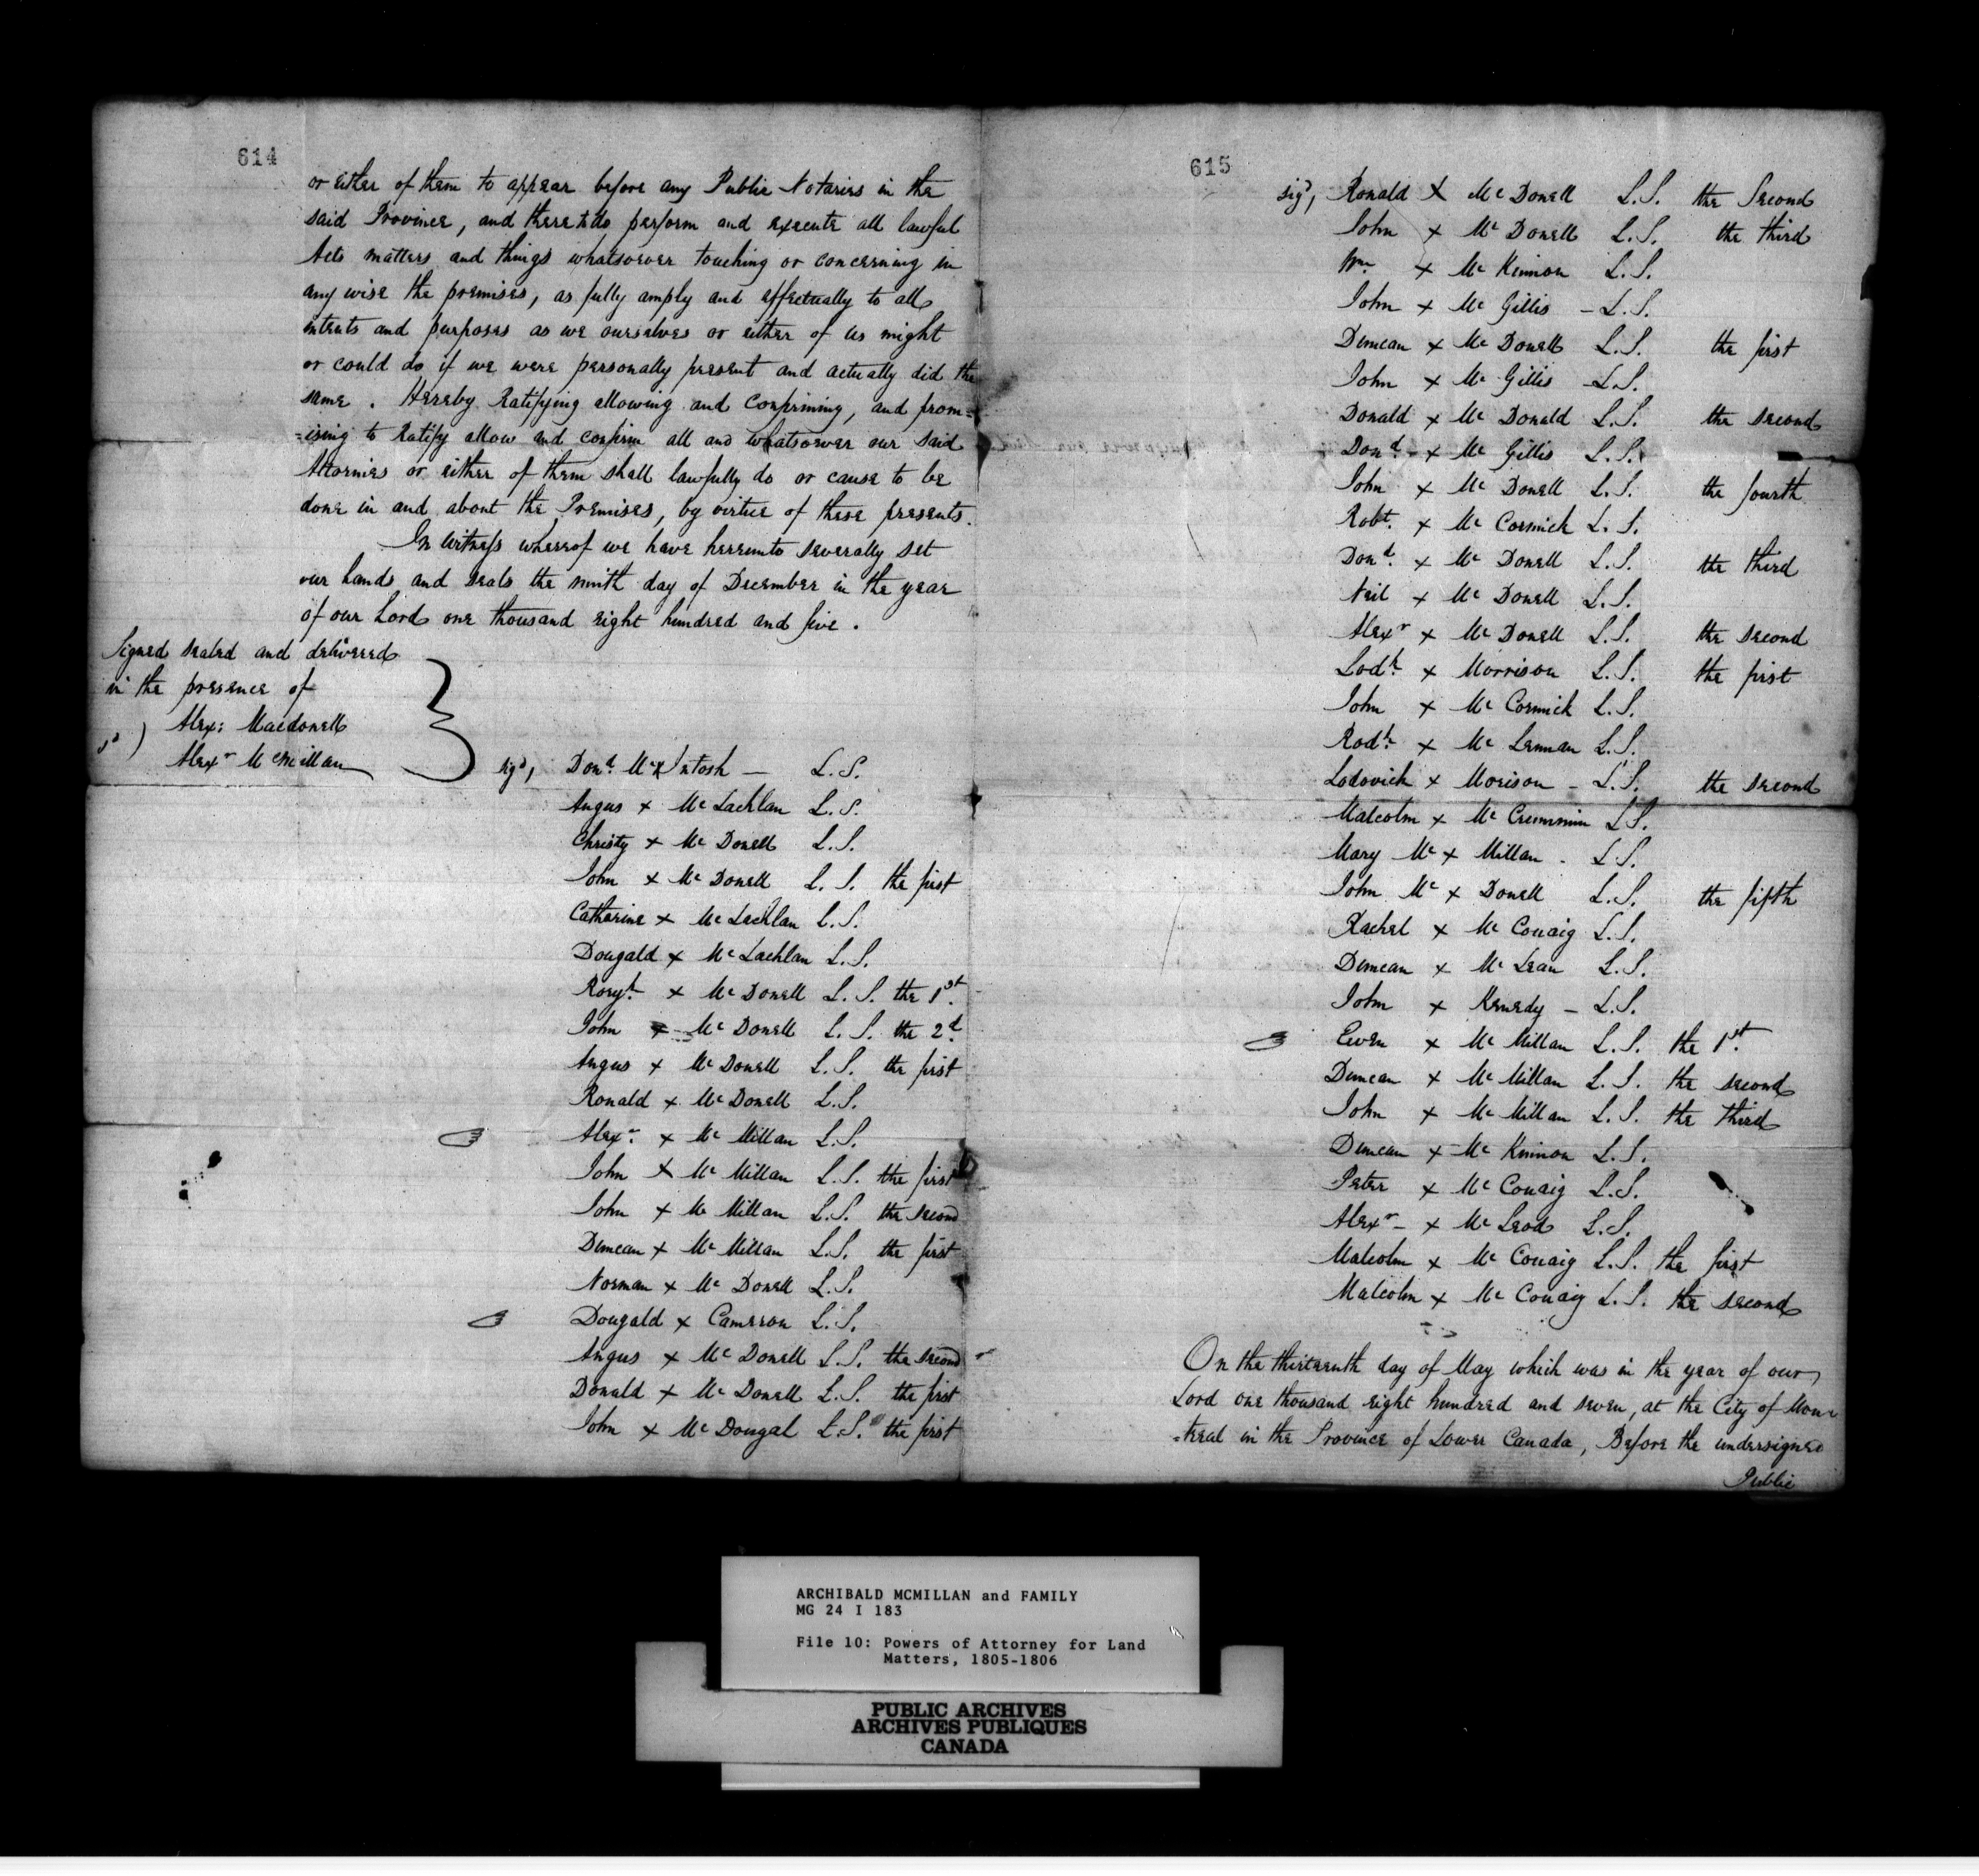 614
or either of them to appear before any Public Notaries in the
said Province, and there to do, perform and execute all lawful
Acts matters and things whatsoever touching or concerning in
any wise the premises, as fully amply and effectually to all
intents and purposes as we ourselves or either of us might
or could do if we were personally present and actually did the
same. Hereby Ratifying allowing and confirming, and prom=
=ising to Ratify allow and confirm all and whatsoever our said
Attornies or either of them shall lawfully do or cause to be
done in and about the Premises, by virtue of these presents.
In Witness whereof we have hereunto severally set
our hands and seals the ninth day of December in the year
of our Lord one thousand eight hundred and five.
Signed sealed and delivered
in the presence of
Alex: Macdonell
sd) Alexr McMillan
sigd, Dond. Mc x Intosh — L.S.
Angus x Mc Lachlan L.S.
Christy x Mc Donell L.S.
John x Mc Donell L.S. the first
Catherine x Mc Lachlan L.S.
Dougald x Mc Lachlan L.S.
Rory x Mc Donell L.S. the 1st.
John x Mc Donell L.S. the 2d.
Angus x Mc Donell L.S. the first
Ronald x Mc Donell L.S.
Alexr. x Mc Millan L.S.
John x Mc Millan L.S. the first
John x Mc Millan L.S. the second
Duncan x Mc Millan L.S. the first
Norman x Mc Donell L.S.
Dougald x Cameron L.S.
Angus x Mc Donell L.S. the second
Donald x Mc Donell L.S. the first
John x Mc Dougal L.S. the first
615
sigd, Ronald x Mc Donell L.S. the Second
John x Mc Donell L.S. the third
Wm. x Mc Kinnon L.S.
John x Mc Gillis - L.S.
Duncan x Mc Donell L.S. the first
John x Mc Gillis - L.S.
Donald x Mc Donald L.S. the second
Dond. x Mc Gillis L.S.
John x Mc Donell L.S. the fourth
Robt. x Mc Cormick L.S.
Dond. x Mc Donell L.S. the third
Neil x Mc Donell L.S.
Alexr x Mc Donell L.S. the second
Lodk. x Morrison L.S. the first
John x Mc Cormick L.S.
Rodk. x Mc Lennan L.S.
Lodovick x Morison - L.S. the second
Malcolm x Mc Crummin L.S.
Mary Mc x Millan - L.S.
John Mc x Donell L.S. the fifth
Rachel x Mc Couaig L.S.
Duncan x Mc Lean L.S.
John x Kenedy - L.S.
Ewen x Mc Millan L.S. the 1st.
Duncan x Mc Millan L.S. the second
John x Mc Millan L.S. the third
Duncan x Mc Kinnon L.S.
Peter x Mc Couaig L.S.
Alexr - x Mc Leod L.S.
Malcolm x Mc Couaig L.S. the first
Malcolm x Mc Couaig L.S. the second
On the thirteenth day of May which was in the year of our
Lord one thousand eight hundred and seven, at the City of Mon=
=treal in the Province of Lower Canada, Before the undersigned
Public
ARCHIBALD MCMILLAN and FAMILY
MG 24 I 183
File 10: Powers of Attorney for Land
Matters, 1805-1806
PUBLIC ARCHIVES
ARCHIVES PUBLIQUES
CANADA